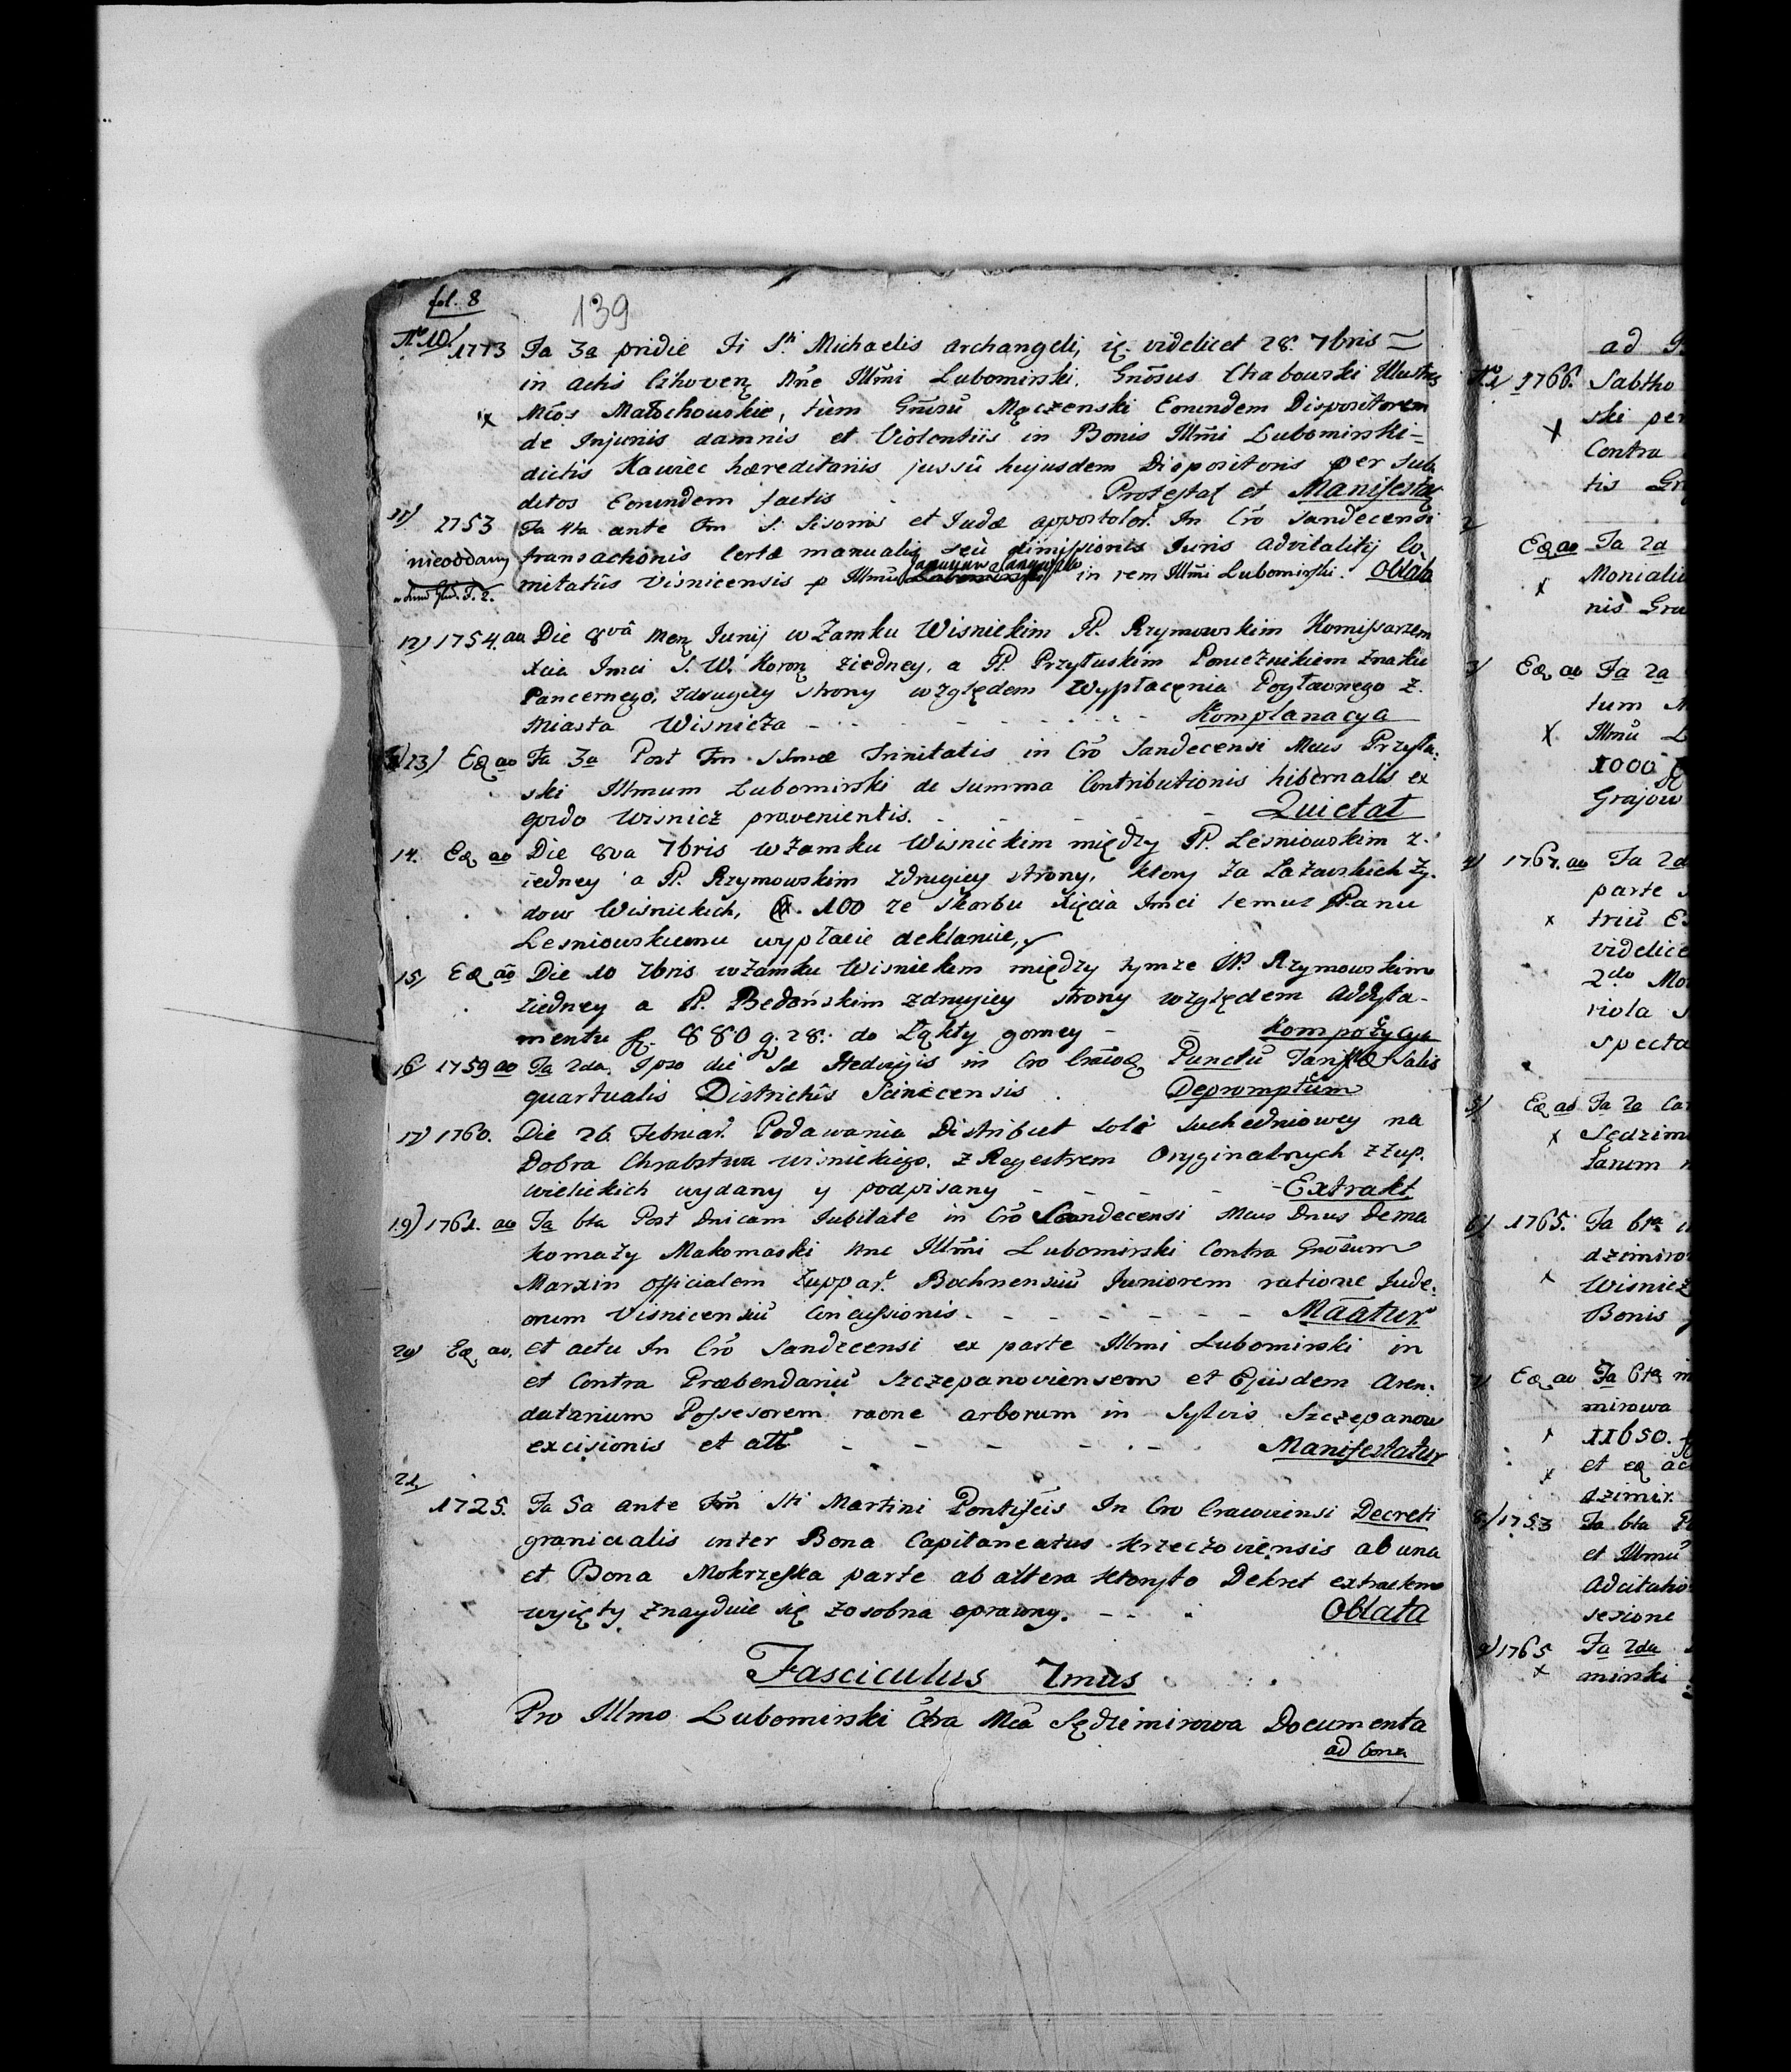 fol. 8
139
Nro 10/ 1773 Fa 3a pridie Fi Sti Michaelis Archangeli, videlicet 28. 7bris
in actis Czhoven nne Illmi Lubomirski. Gnosus Chabowski Illustres
x Mcos Małachowskie, tùm Gnosu Męczenski Eorundem Dispositorem
de Injuriis damnis et Violentiis in Bonis Illmi Lubomirski
dictis Kawiec hæreditariis jussû hujusdem Dispositoris per sub
ditos Eorundem factis Protestat et Manifestat
11) 1753 Fa 4ta ante Fm S. Simonis et Judæ appostolor. In Cro Sandecensi
nieoddany transactionis certæ manualis seù dimissionis Juris advitalitij Co
mitatûs Visnicensis p Illmu in rem Illmi Lubomirski. Oblata
12) 1754. ao Die 8vâ Men Junij w Zamku Wisnickim JP. Rzymowskim Komissarzem
Xcia Imci S. W. Koron ziedney, a JP. Przyłuskim Porucznikiem znaku
Pancernego, zdrugiey strony względem wypłacenia Pogławnego z
Miasta Wisnicza - - - - Komplanacya
13) Eo ao Fa 3a Post Fm SSmæ Trinitatis in Cro Sandecensi Mcus Przyłu
ski Illmum Lubomirski de summa Contributionis hibernalis ex
opido Wisnicz provenientis. - - - - Quietat
14. Eo ao Die 8va 7bris w Zamku Wisnickim między JP. Lesniowskim z
iedney a JP. Rzymowskim zdrugiey strony, ktory za Łazarskich Zy
dow Wisnickich, 100 ze skarbu Xięcia Imci temuz JPanu
Lesniowskiemu wypłacic deklaruie,
15) Eo ao Die 10 7bris w Zamku Wisnickim między tymze JP. Rzymowskim
ziedney a JP. Bedońskim zdrugiey strony względem addyta-
mentu fl. 880 g. 28. do Łąkty gorney - - Kompozycya
16) 1759 ao Fa 2da Ipso die Sæ Hedvigis in Cro Punctu Tariffæ Salis
quartualis Districtûs Scirzecensis Depromptum
17) 1760. Die 26 Februar. Podawania Distribut soli suchedniowey na
Dobra Chrabstwa wisnickiego. z Regestrem Oryginalnych z Zup.
wielickich wydany y podpisany - - - - Extrakt
19) 1761. ao Fa 6ta Post Dnicam Jubilate in Cro Sandecensi Mcus Dnus Dema
komaży Makomaski nne Illmi Lubomirski Contra Gnosum
Marxin officialem Zuppar. Bochnensiu Juniorem ratione Jude
orum Visnicensiu Concussionis. - - - - - Maatur
20) Eo ao. et actu In Cro Sandecensi ex parte Illmi Lubomirski in
et Contra Præbendariu Szczepanoviensem et Ejusdem Aren
datarium Possesorem raone arborum in Sylvis Szczepanow
excisionis et att - - - - - Manifestatur
21) 1725. Fa 5a ante Fm Sti Martini Pontificis In Cro Cracoviensi Decreti
granicialis inter Bona Capitaneatus Krzeczoviensis ab una
et Bona Mokrzyska parte ab altera ktoryto Dekret extractem
wyięty znayduie się zosobna oprawny. - - - Oblata
Fasciculus 7mus
Pro Illmo Lubomirski Ctra Mca Sędzimirowa Documenta
ad bona
Nro 1/ 1766. Sabtho
x ski per
Contra
tis Gr
2 Eo ao Fa 2a
x Monialiu
nis Gra
3) Eo ao Fa 2a
tum M
x Illmu L
1000
Grajow
4) 1767. ao Fa 2da
parte
x triu
videlice
2do Mo
viola
specta
5) Eo ao Fa 2a
x Sędzim
6) 1765. Fa 6ta
dzimiro
x Wisnicz
Bonis
7) Eo ao Fa 6ta
mirowa
11650.
x et eo
dzimir.
8/ 1753 Fa 6ta
et Illmu
Adcitatio
sesione
9) 1765 Fa 2da
x mirski